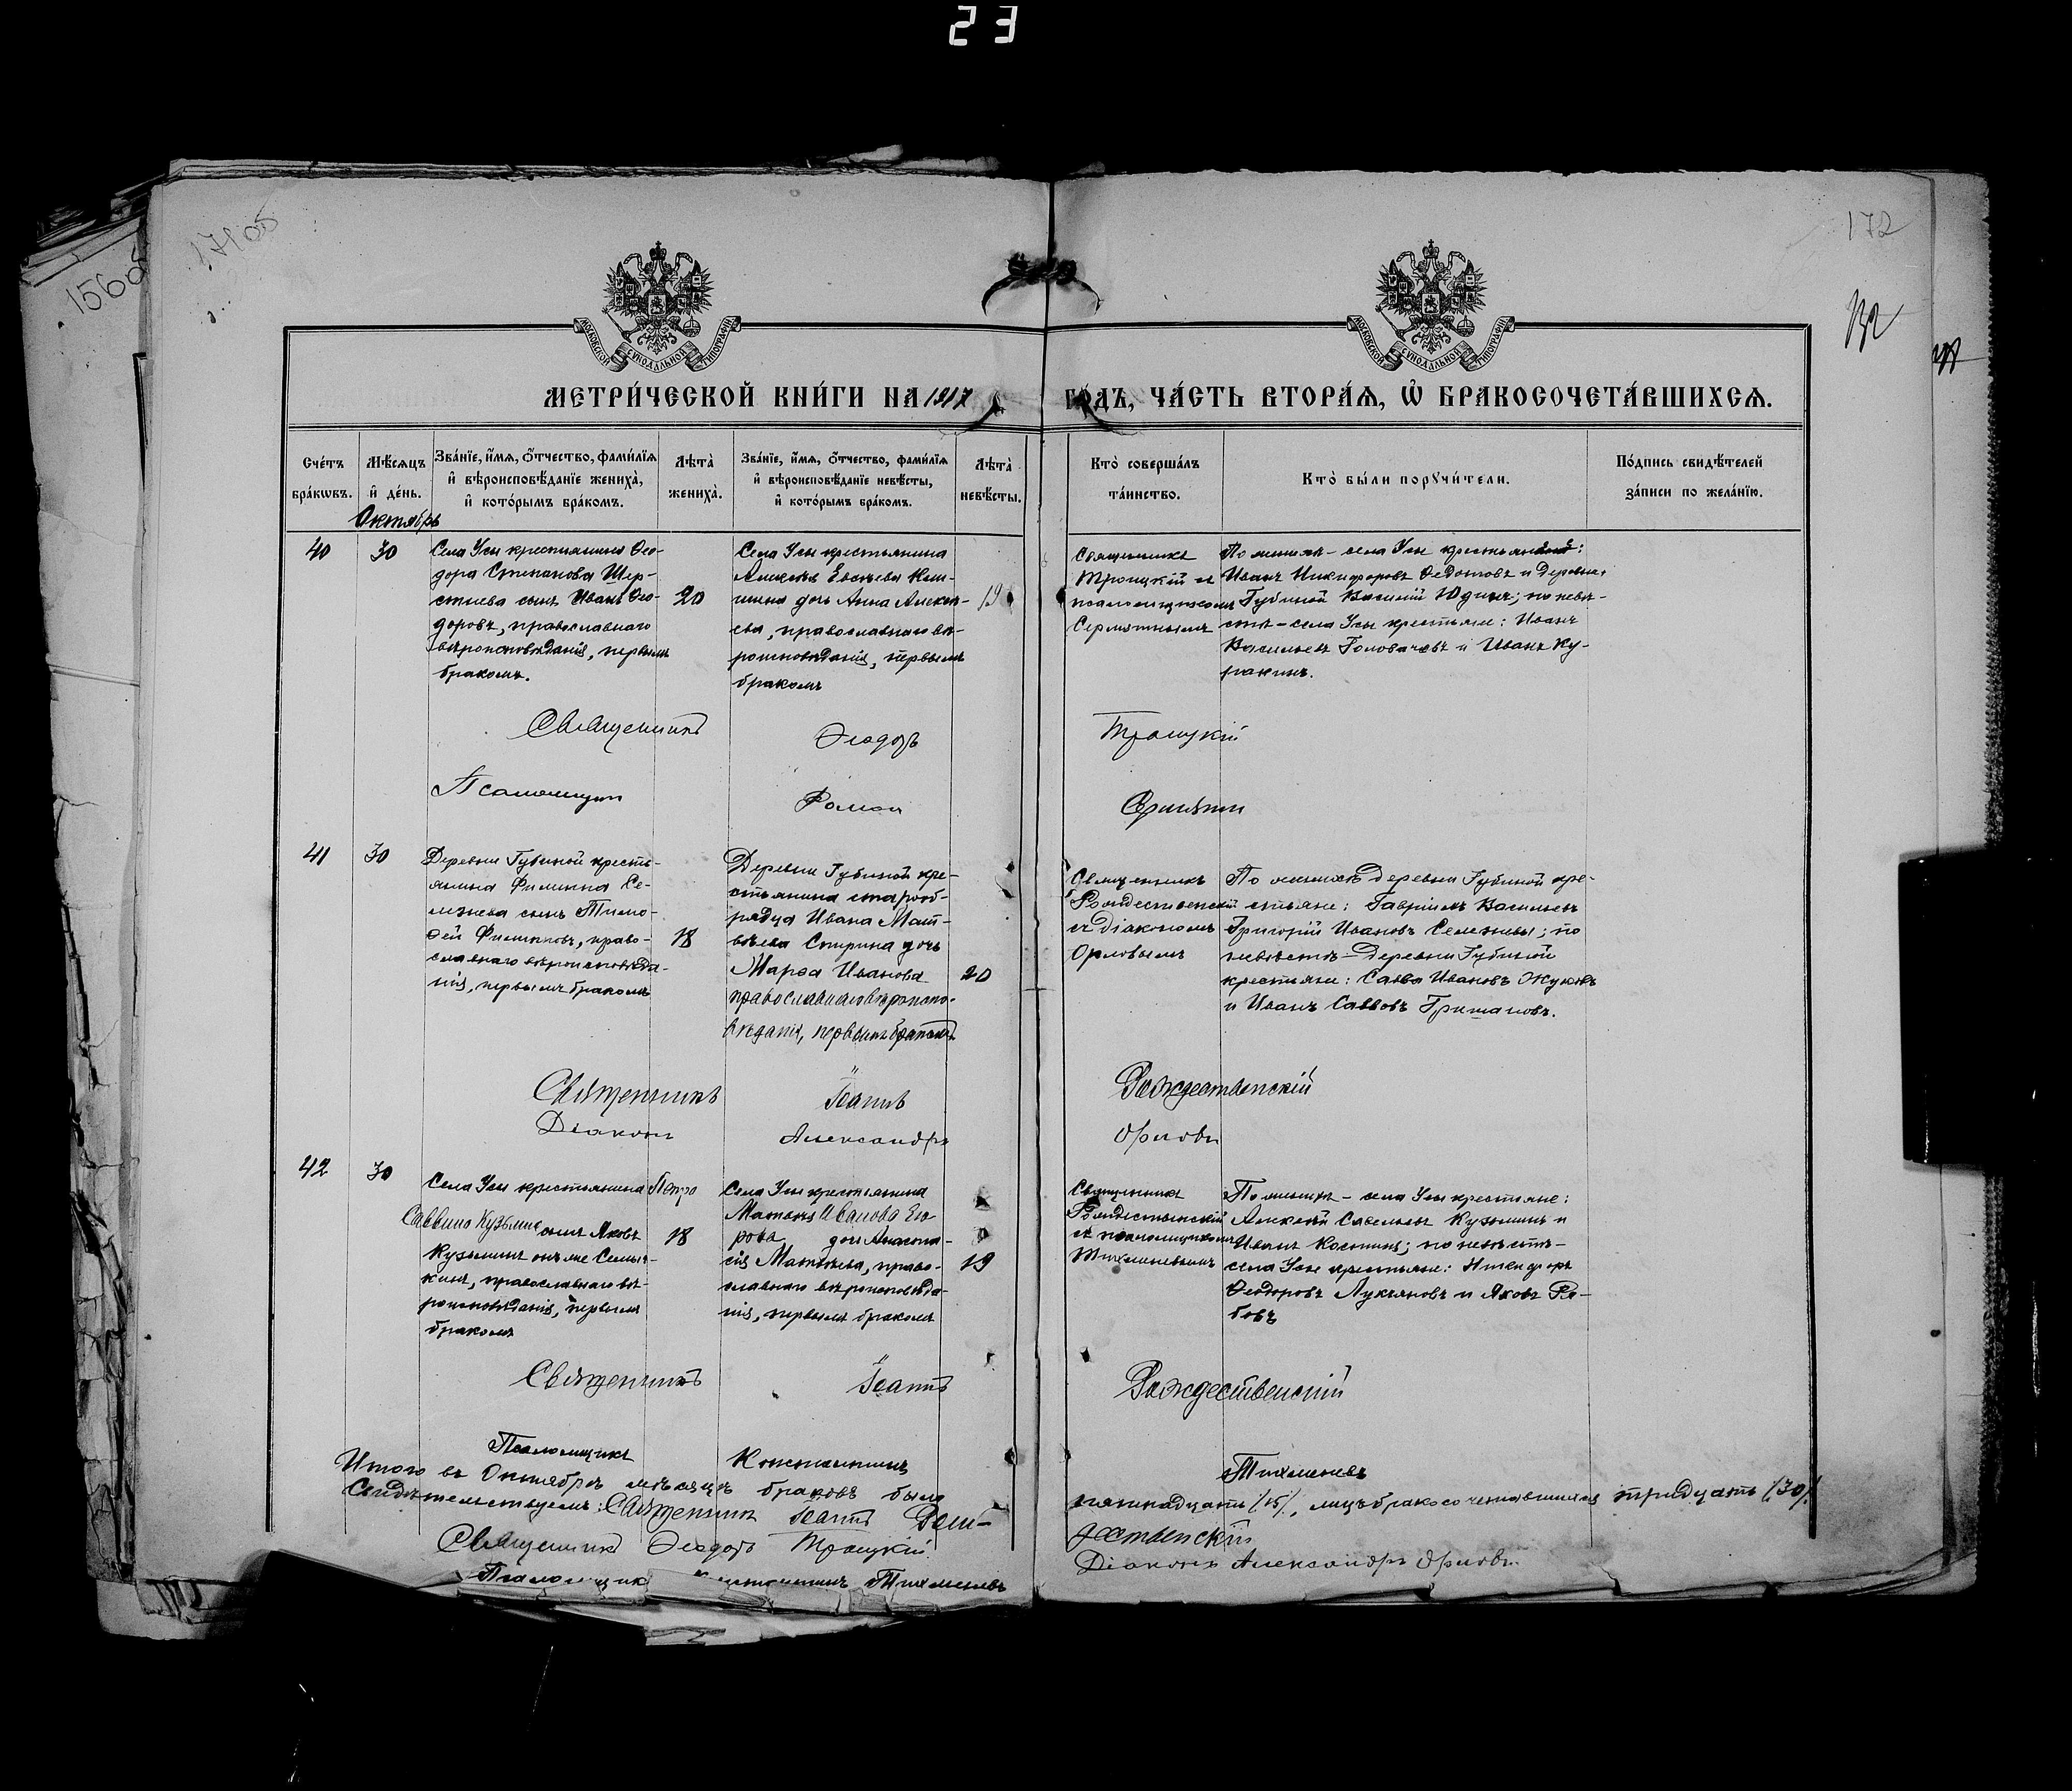 23
171об
156об
172
МОСКОВСКОЙ СѴНОДАЛЬНОЙ ТИПОГРАФІИ
МОСКОВСКОЙ СѴНОДАЛЬНОЙ ТИПОГРАФІИ
МЕТРИ́ЧЕСКОЙ КНИ́ГИ НА 1917 ГО́ДЪ, ЧА́СТЬ ВТОРА́Я, Ѡ҆ БРАКОСОЧЕТА́ВШИХСЯ.
Сче́тъ
бра́кѡвъ.
Мѣ́сяцъ
и҆ де́нь.
Зва́нїе, и҆́мя, ѻ҆́тчество, фами́лїя
и҆ вѣроисповѣ́данїе жениха̀,
и҆ кото́рымъ бра́комъ.
Лѣта̀
жениха̀.
Зва́нїе, и҆́мя, ѻ҆́тчество, фами́лїя
и҆ вѣроисповѣ́данїе невѣ́сты,
и҆ кото́рымъ бра́комъ.
Лѣта̀
невѣ́сты.
Кто̀ соверша́лъ
та́инство.
Кто̀ бы́ли порꙋчи́тели.
По́дпись свидѣ́телей
за́писи по жела́нїю.
Октябрь
40
30
Села Усы крестьянина Ѳео-
дора Степанова Шер-
стнева сынъ Иванъ Ѳео-
доровъ, православнаго
вѣроисповѣданія, первымъ
бракомъ.
20
Села Усы крестьянина
Алексѣя Евсѣева
дочь Анна Алексѣ-
ева, православнаго вѣ-
роисповѣданія, первымъ
бракомъ
19
Священникъ
Троицкій съ
псаломщикомъ
Сермягинымъ
По женихѣ - села Усы крестьяне:
Иванъ Никифоровъ Ѳедотовъ и деревни
Губиной Василій Юдинъ; по невѣ-
стѣ - села Усы крестьяне: Иванъ
Васильевъ Головачевъ и Иванъ Ку-
ракинъ.
Священникъ Ѳеодоръ Троицкій
Псаломщикъ Роман
41
30
Деревни Губиной кресть-
янина Филиппа Се-
лезнева сынъ Тимо-
ѳей Филипповъ, право-
славнаго вѣроисповѣда-
нія, первымъ бракомъ
18
Деревни Губиной кре-
стьянина старооб-
рядца Ивана Мат-
вѣева Спирина дочь
Марѳа Иванова
православнаго вѣроиспо-
вѣданія, первымъ бракомъ
20
Священникъ
Рождественскій
съ діакономъ
Орловымъ
По женихѣ деревни Губиной кре-
стьяне: Гавріилъ Васильевъ
Григорій Ивановъ Селезневы; по
невѣстѣ - деревни Губиной
крестьяне: Савва Ивановъ Жуковъ
и Иванъ Саввовъ Гришановъ.
Священникъ Іоаннъ Рождественскій
Діаконъ Александръ Орловъ
42
30
Села Усы крестьянина Петра
Саввина Кузьмина сынъ Яковъ
Кузьминъ онъ же Семыч-
кинъ, православнаго вѣ-
роисповѣданія, первымъ
бракомъ
18
Села Усы крестьянина
Матвѣя Иванова Его-
рова дочь Анаста-
сія Матвѣева, право-
славнаго вѣроисповѣда-
нія, первымъ бракомъ
19
Священникъ
Рождественскій
съ псаломщикомъ
Тихменевымъ
По женихѣ - села Усы крестьяне:
Алексѣй Савельевъ Кузьминъ и
Иванъ Костинъ; по невѣстѣ -
села Усы крестьяне: Никифоръ
Ѳеодоровъ Лукъяновъ и Яковъ Ря-
бовъ
Священникъ Іоаннъ Рождественскій
Псаломщикъ Константинъ Тихменевъ
Итого въ Октябрѣ мѣсяцѣ браковъ было пятнадцать /15/, лицъ бракосочетавшихся тридцать /30/.
Свидѣтельствуемъ: Священникъ Іоаннъ Рож-
дественскій
Священникъ Ѳеодоръ Троицкій
Діаконъ Александръ Орловъ
Псаломщикъ Константинъ Тихменевъ